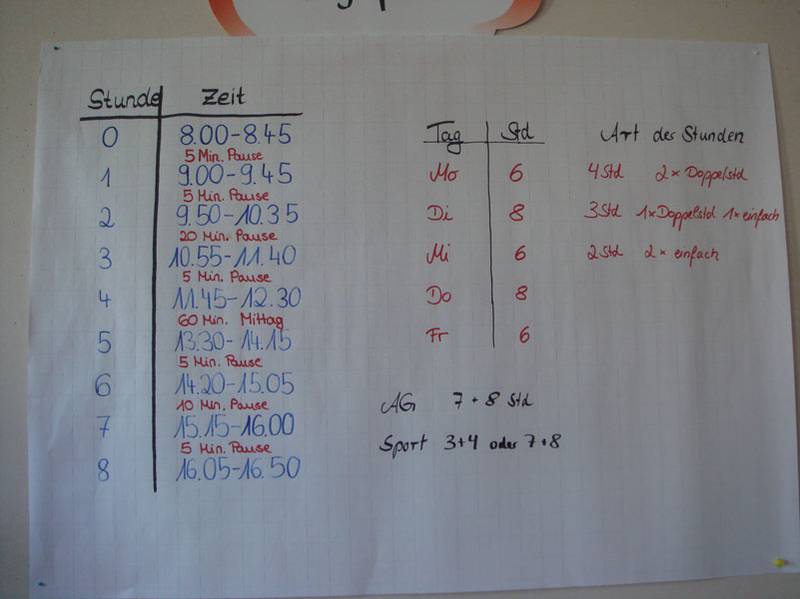 Stunde Zeit
0 8.00-8.45
5 Min. Pause
1 9.00-9.45
5 Min. Pause
2 9.50-10.35
20 Min. Pause
3 10.55-11.40
5 Min. Pause
4 11.45-12.30
60 Min. Mittag
5 13.30-14.15
5 Min. Pause
6 14.20-15.05
10 Min. Pause
7 15.15-16.00
5 Min. Pause
8 16.05-16.50
Tag Std
Mo 6
Di 8
Mi 6
Do 8
Fr 6
Art der Stunden
4 Std 2x Doppelstd
3 Std 1x Doppelstd 1x einfach
2 Std 2x einfach
AG 7 + 8 Std
Sport 3+4 oder 7+8